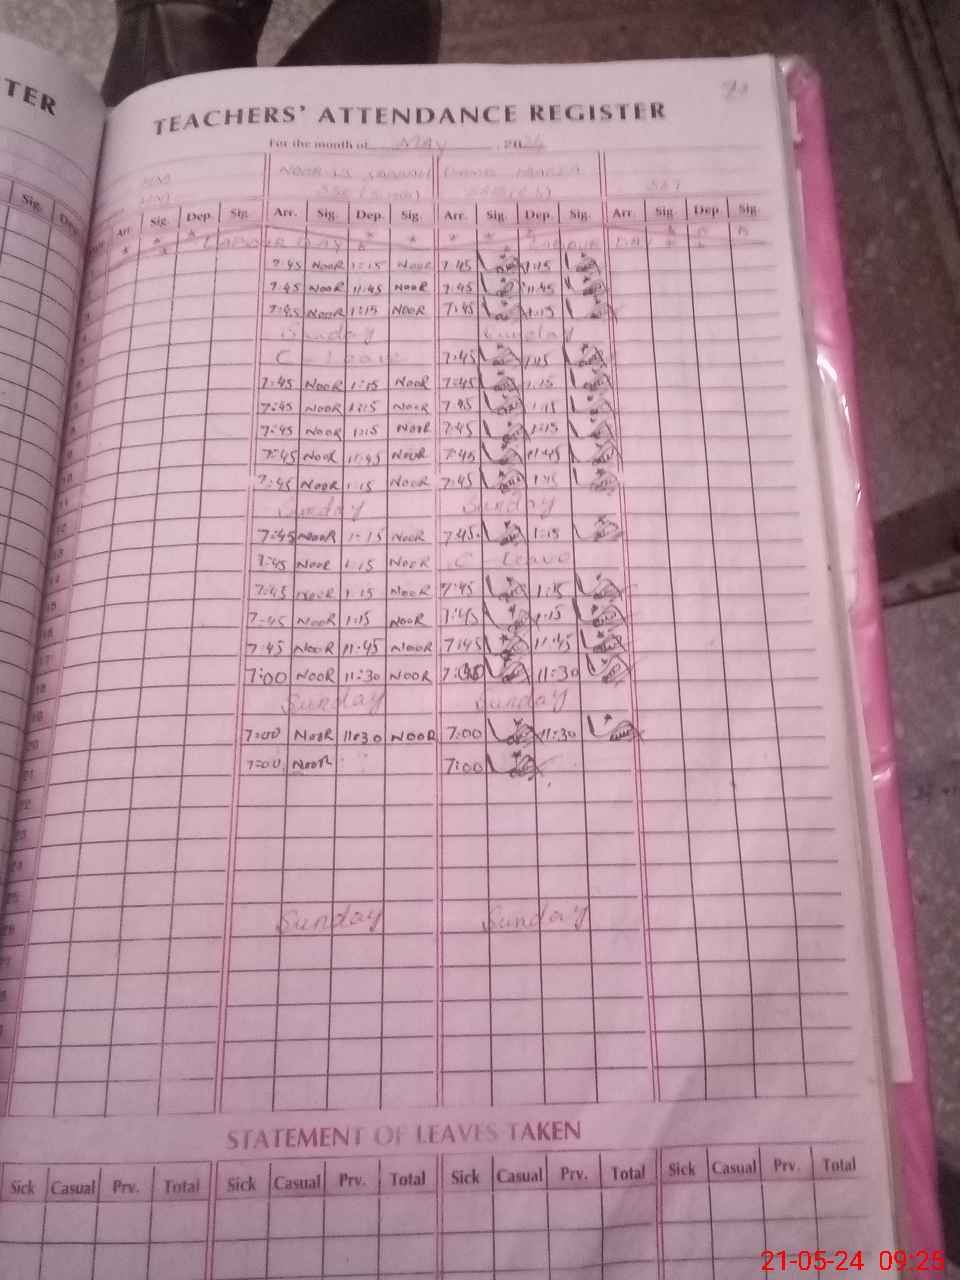 TER
TEACHERS' ATTENDANCE REGISTER
For the month of MAY 2024
HM
SST
Sig. Arr. Sig. Dep. Sig. Arr. Sig. Dep. Sig. Arr. Sig. Dep. Sig. Arr. Sig. Dep. Sig.
LABOUR DAY LABOUR DAY
7:45 NOOR 1:15 NOOR 7:45 1:15
7:45 NOOR 11:45 NOOR 7:45 11:45
7:45 NOOR 1:15 NOOR 7:45 1:15
Sunday Sunday
C - Leave 7:45 1:15
7:45 NOOR 1:15 NOOR 7:45 1:15
7:45 NOOR 1:15 NOOR 7:45 1:15
7:45 NOOR 1:15 NOOR 7:45 1:15
7:45 NOOR 11:45 NOOR 7:45 11:45
7:45 NOOR 1:15 NOOR 7:45 1:15
Sunday Sunday
7:45 NOOR 1:15 NOOR 7:45 1:15
7:45 NOOR 1:15 NOOR C Leave
7:45 NOOR 1:15 NOOR 7:45 1:15
7:45 NOOR 1:15 NOOR 7:45 1:15
7:45 NOOR 11:45 NOOR 7:45 11:45
7:00 NOOR 11:30 NOOR 7:00 11:30
Sunday Sunday
7:00 NOOR 11:30 NOOR 7:00 11:30
7:00 NOOR 7:00
Sunday Sunday
STATEMENT OF LEAVES TAKEN
Sick Casual Prv. Total Sick Casual Prv. Total Sick Casual Prv. Total Sick Casual Prv. Total
21-05-24 09:25